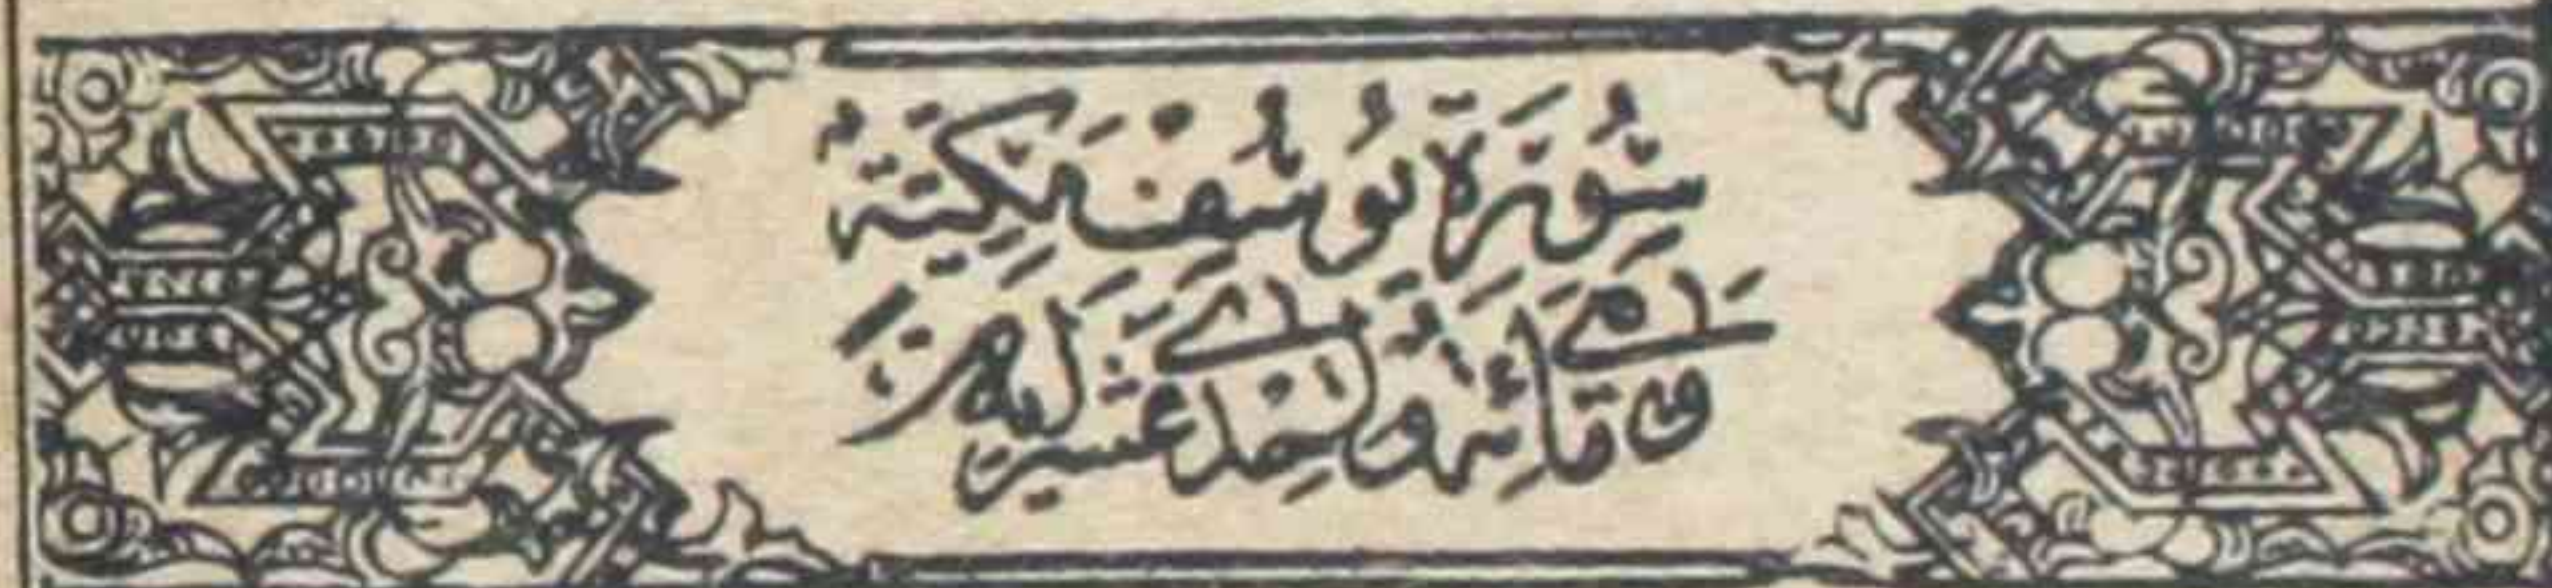 سُورَةُ يُوسُفَ مَكِّيَّةٌ
وَهِيَ مِائَةٌ وَاِحْدٰى عَشَرَ اٰيَةً